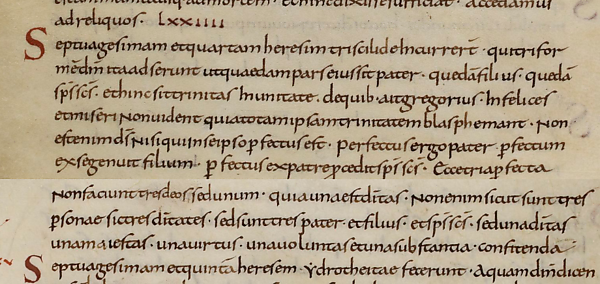 ad reliquos · lxxiiii
Septuagesimam et quartam heresim triscilide Incurrert̄ · qui trifor
mēdm̄ ita adserunt ut quaedam pars eius sit pater · quedā filius · quedā
sp̄s sc̄s · et hinc sit trinitas In unitate · de quib· ait gregorius · Infelices
et miseri Non uident quia totam ipsam trinitatem blasphemant · Non
est enim dī Nisi qui In se ipso p̄fectus est · Perfectus ergo pater · p̄fectum
ex se genuit filium · p̄fectus ex patre p̄cedit sp̄s sc̄s · Ecce tria p̄fecta
Non faciunt tres deos sed unum · quia una est dītas · Non enim sicut sunt tres
p̄sonae sic tres dītates · sed sunt tres pater · et filius · et sp̄s sc̄s · sed una dītas
una maiestas · una uirtus · una uoluntas et una substantia · confitenda
Septuagesimam et quintā heresem · ydrotheitae fecerunt · Aquam dm̄ dicen